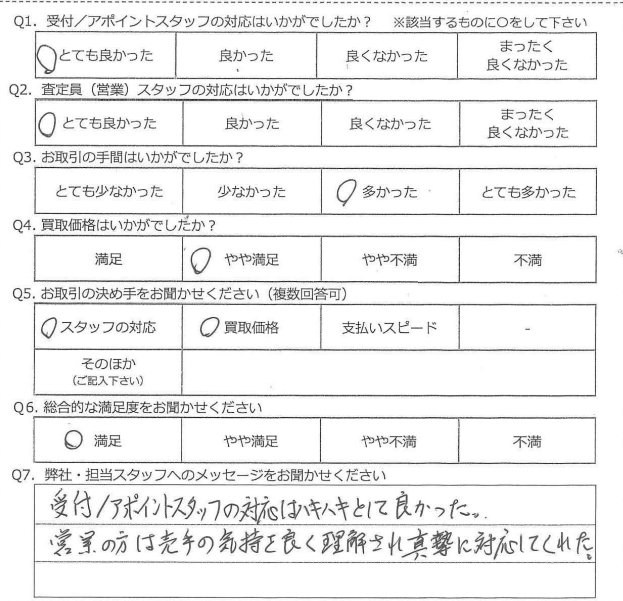 Q1. 受付／アポイントスタッフの対応はいかがでしたか？ ※該当するものに○をして下さい
○とても良かった 良かった 良くなかった まったく
良くなかった
Q2. 査定員（営業）スタッフの対応はいかがでしたか？
○とても良かった 良かった 良くなかった まったく
良くなかった
Q3. お取引の手間はいかがでしたか？
とても少なかった 少なかった ○多かった とても多かった
Q4. 買取価格はいかがでしたか？
満足 ○やや満足 やや不満 不満
Q5. お取引の決め手をお聞かせください（複数回答可）
○スタッフの対応 ○買取価格 支払いスピード -
そのほか
（ご記入下さい）
Q6. 総合的な満足度をお聞かせください
○満足 やや満足 やや不満 不満
Q7. 弊社・担当スタッフへのメッセージをお聞かせください
受付/アポイントスタッフの対応はハキハキとして良かった。
営業の方は売手の気持を良く理解され真摯に対応してくれた。